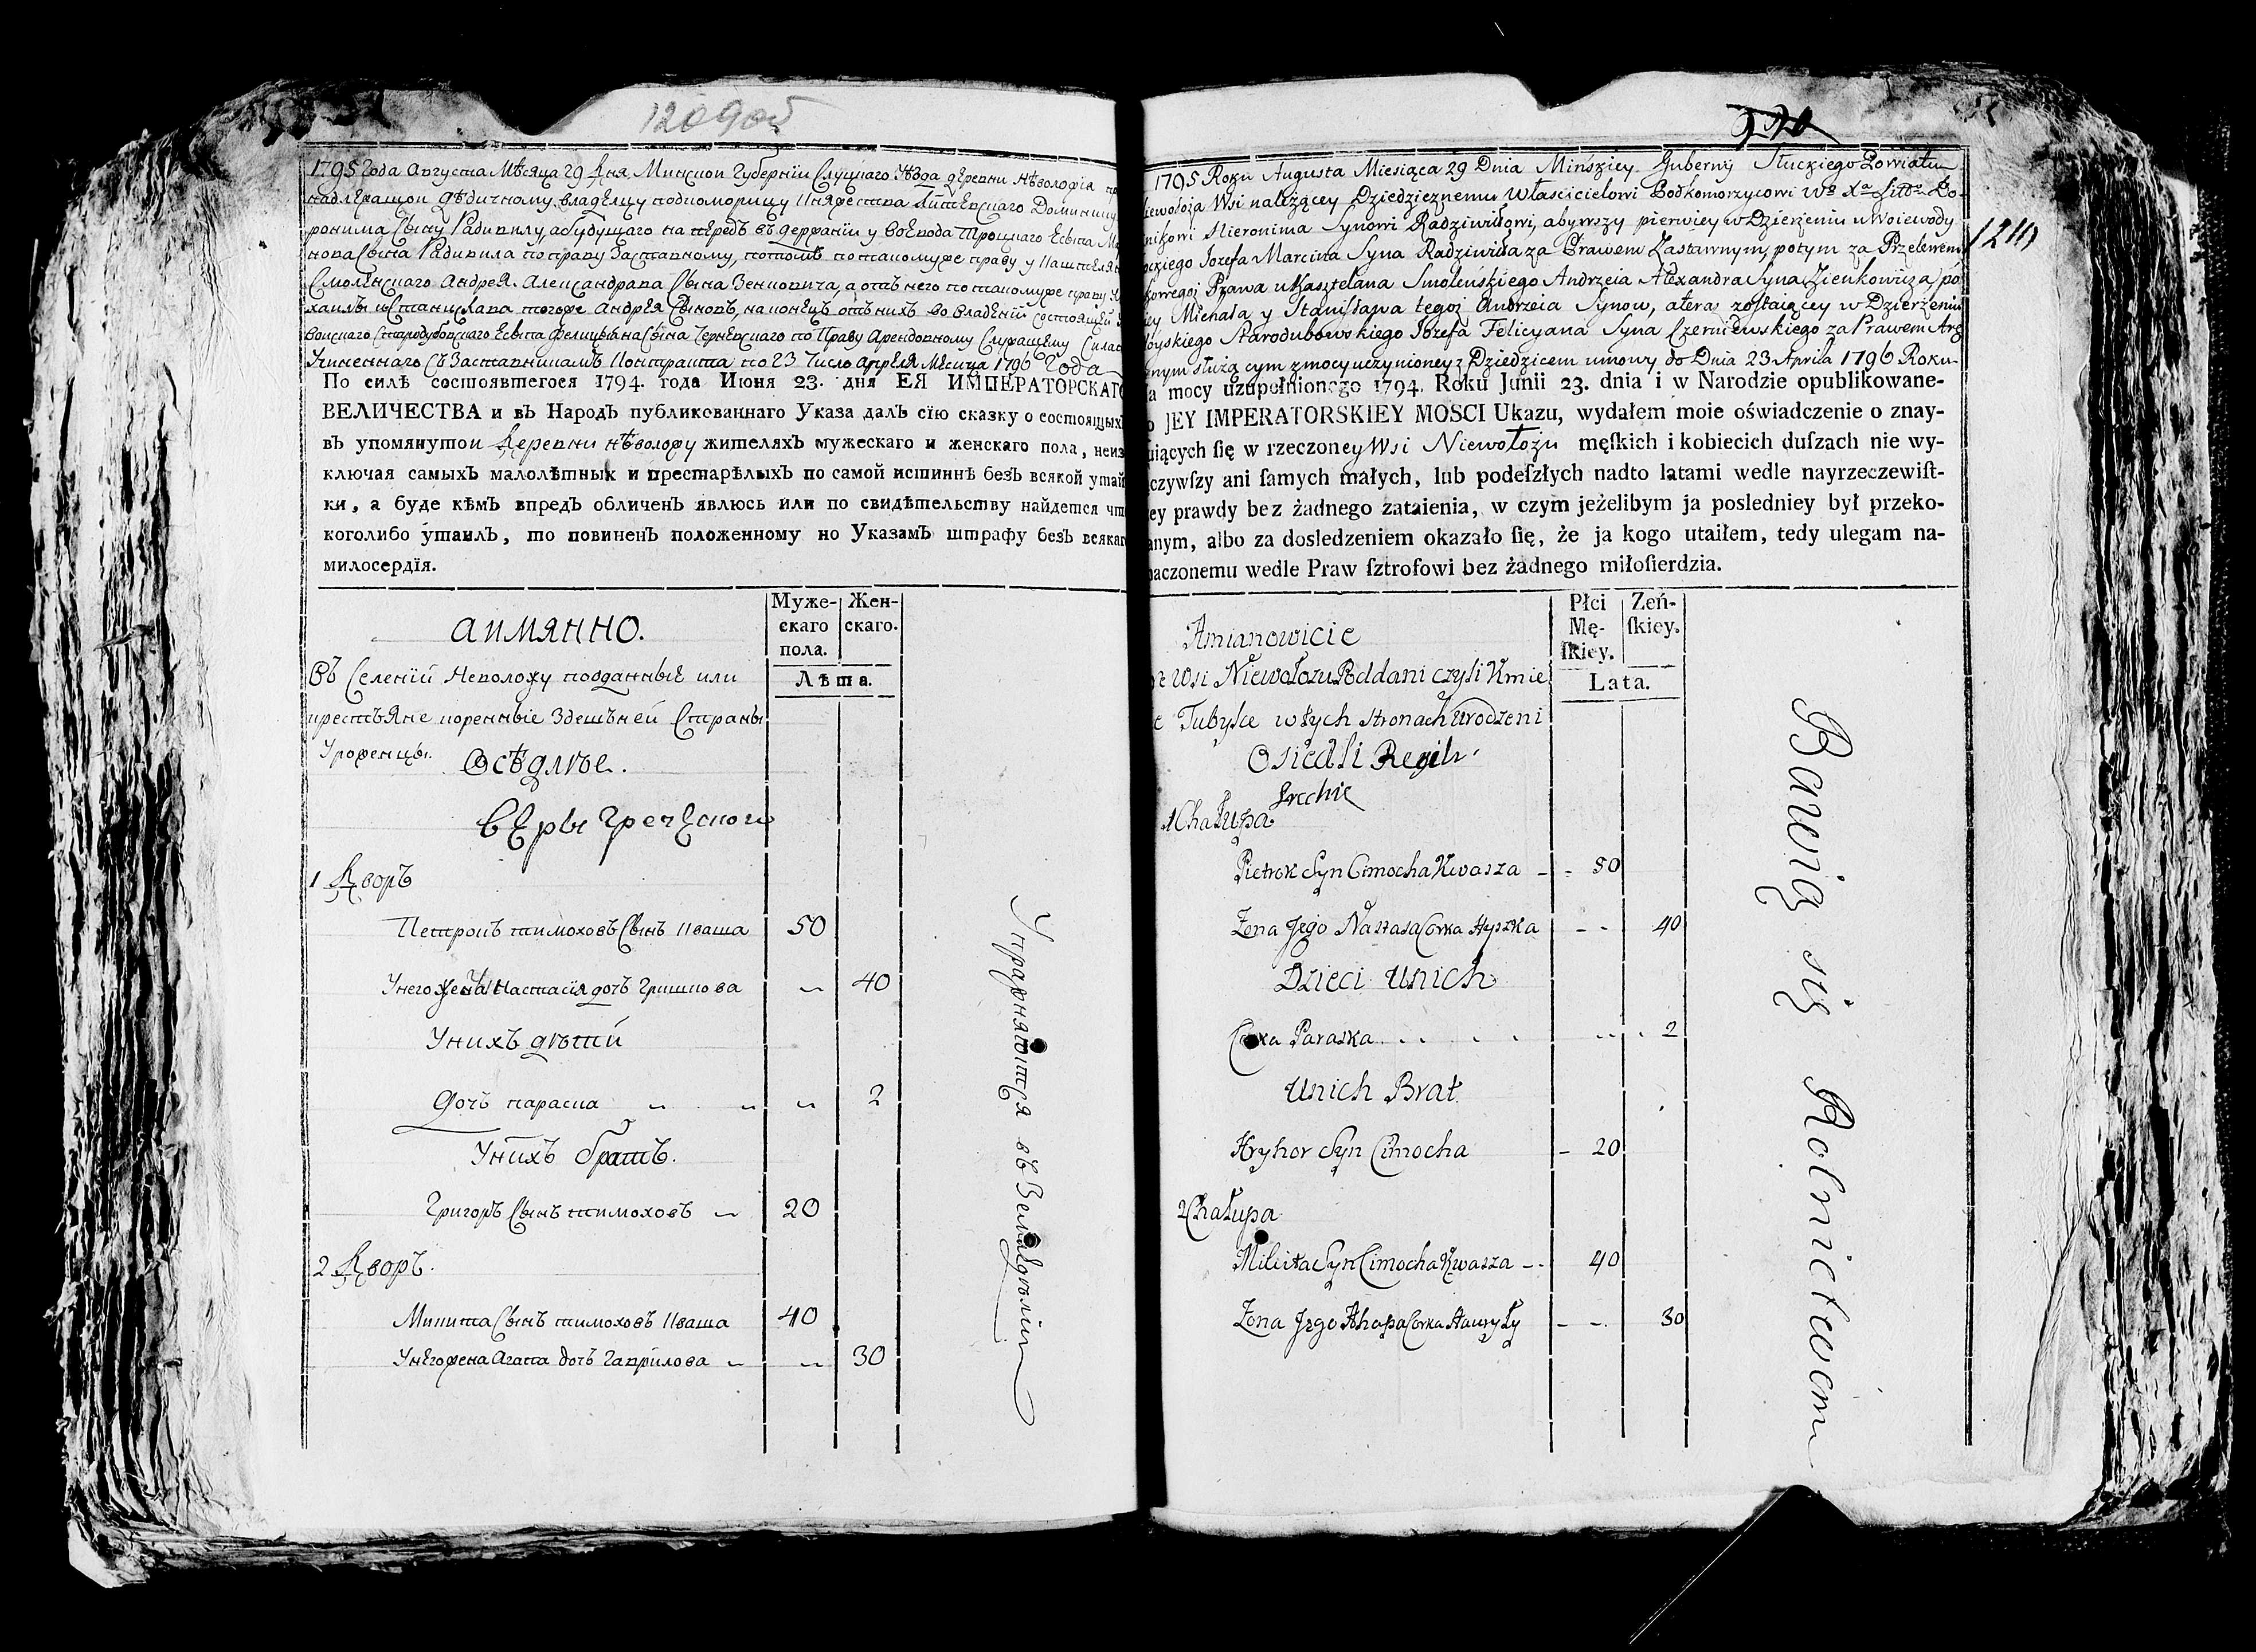 120 9об
1795 Года Августа Мѣсяца 29 Дня Минской Губернїи Слуцкаго Уѣзда деревни Нѣволожа
надлежащой дѣдичному владелцу подкоморицу Княжества Литевскаго Доминику
ронима Сыну Радивилу, а будущаго на передъ въ держанїи у воевода Троцкаго Есыпа
нова Сына Радивила по праву Заставному, потомъ по такомуже праву у Каштеля
Смоленскаго Андрея Александрава Сына Зенковича, а отъ него по такомуже праву
хаилы и Станислава тогоже Андрея Сыновъ, наконецъ отъ нихъ во владенїй состоящей
воискаго Стародубовскаго Есыпа Фелицїяна Сына Чернѣвскаго по Праву Арендовному Служащему
Учиненнаго Съ Заставникамъ Контракта по 23 Число Апреля Месяца 1796 Года
По силѣ состоявшегося 1794. года Июня 23. дня ЕЯ ИМПЕРАТОРСКАГО
ВЕЛИЧЕСТВА и въ Народъ публикованнаго Указа далъ сїю сказку о состоящыхъ
въ упомянутой Деревни нѣволожу жителяхъ мужескаго и женскаго пола, неиз
ключая самыхъ малолѣтныхъ и престарѣлыхъ по самой истиннѣ безъ всякой утай
ки, а буде кѣмъ впредъ обличенъ явлюсь или по свидѣтельству найдется что
коголибо утаилъ, то повиненъ положенному по Указамъ штрафу безъ всякаго
милосердїя.
АИМЯННО.
Муже-скаго пола.
Жен-скаго.
Лѣта.
Въ Селенїй Неволожу подданные или
крестъяне коренные Здешъней Страны
Уроженцы. Осѣдлые.
Веры Греческои
1 Дворъ
Петрокъ тимоховъ Сынъ Кваша 50
Унего жена Настасїя дочь Гришкова 40
Унихъ дѣтѣй
дочь параска 2
Унихъ братъ.
Григоръ Сынъ тимоховъ 20
2 Дворъ.
Микита Сынъ тимоховъ Кваша 40
Унегожена Агапа дочь Гаврилова 30
Упражняются въ Земледѣлїи
520
1210
1795 Roku Augusta Miesiąca 29 Dnia Minskiey Guberny Słuckiego Powiatu
iewołoża Wsi należącey Dziedzicznemu Właścicielowi Podkomorzycowi Wo Xa Litto Do-
nikowi Hieronima Synowi Radziwiłłowi, abywszy pierwiey w Dzierżeniu u Woiewody
ockiego Jozefa Marcina Syna Radziwiła za Prawem Zastawnym, potym za Przelewem
korregoż Prawa u Kasztelana Smoleńskiego Andrzeia Alexandra Syna Zienkowicza, po
iey Michała y Stanisława tegoż Andrzeia Synow, a teraz zostaiącey w Dzierżeniu
oyskiego Starodubowskiego Jozefa Felicyana Syna Czerniewskiego za Prawem Arę
wnym służącym z mocy uczynioney z Dziedzicem umowy do Dnia 23 Aprila 1796 Roku
a mocy uzupełnionego 1794. Roku Junii 23. dnia i w Narodzie opublikowane-
o JEY IMPERATORSKIEY MOSCI Ukazu, wydałem moie oświadczenie o znay-
uiących ſię w rzeczoney Wsi Niewołożu męſkich i kobiecich duſzach nie wy-
czywſzy ani ſamych małych, lub podeſzłych nadto latami wedle nayrzeczewiſt-
ey prawdy bez żadnego zataienia, w czym jeżelibym ja posledniey był przeko-
anym, albo za dosledzeniem okazało ſię, że ja kogo utaiłem, tedy ulegam na-
naczonemu wedle Praw ſztrofowi bez żadnego miłoſierdzia.
Amianowicie
Płci Mę-ſkiey.
Zeń-ſkiey.
Lata.
we Wsi Niewołożu Poddani czyli Kmie
e Tubylce w tych Stronach Urodzeni
Osiedli Religii
Grechie
1 Chałupa
Pietrok Syn Cimocha Kwasza 50
Zona Jego Nastasa Corka Hyszka 40
Dzieci Unich
Corka Paraska 2
Unich Brat
Hryhor Syn Cimocha 20
2 Chałupa
Mikita Syn Cimocha Kwasza 40
Zona Jego Ahapa Corka Hauryły 30
Bawią się Rolnictwem